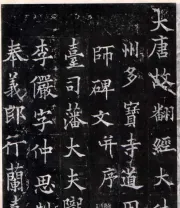 大唐故翻經大德
州多寶寺道因
師碑文并序
臺司藩大夫隴
李儼字仲思製
奉義郎行蘭臺